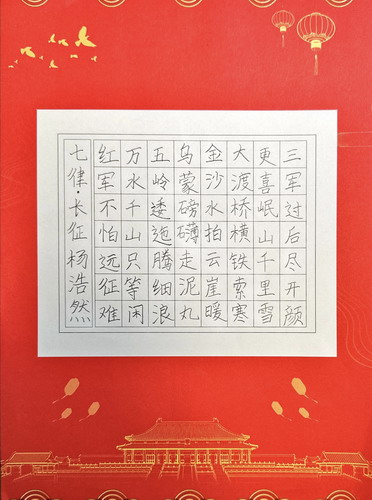 七律·长征杨浩然
红军不怕远征难
万水千山只等闲
五岭逶迤腾细浪
乌蒙磅礴走泥丸
金沙水拍云崖暖
大渡桥横铁索寒
更喜岷山千里雪
三军过后尽开颜